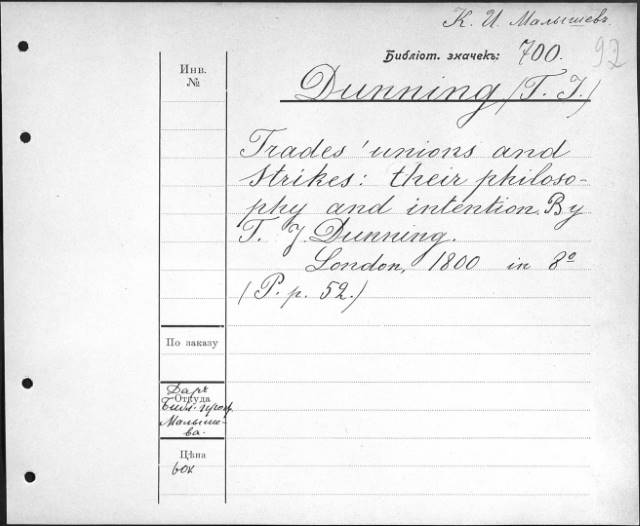 К. И. Малышевъ
Библіот. значекъ: 700. 92
Инв.
№
Dunning (T. J.)
Trades' unions and
strikes: their philoso-
phy and intention. By
T. J. Dunning.
London, 1800 in 8°
(P. p. 52.)
По заказу
Откуда
Даръ
Библ. проф.
Малыше-
ва.
Цѣна
60к